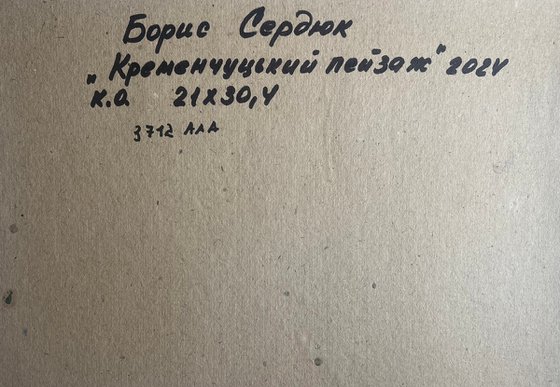 Борис Сердюк
„Кременчуцький пейзаж" 2024
к.о. 21х30,4
3712 АЛА